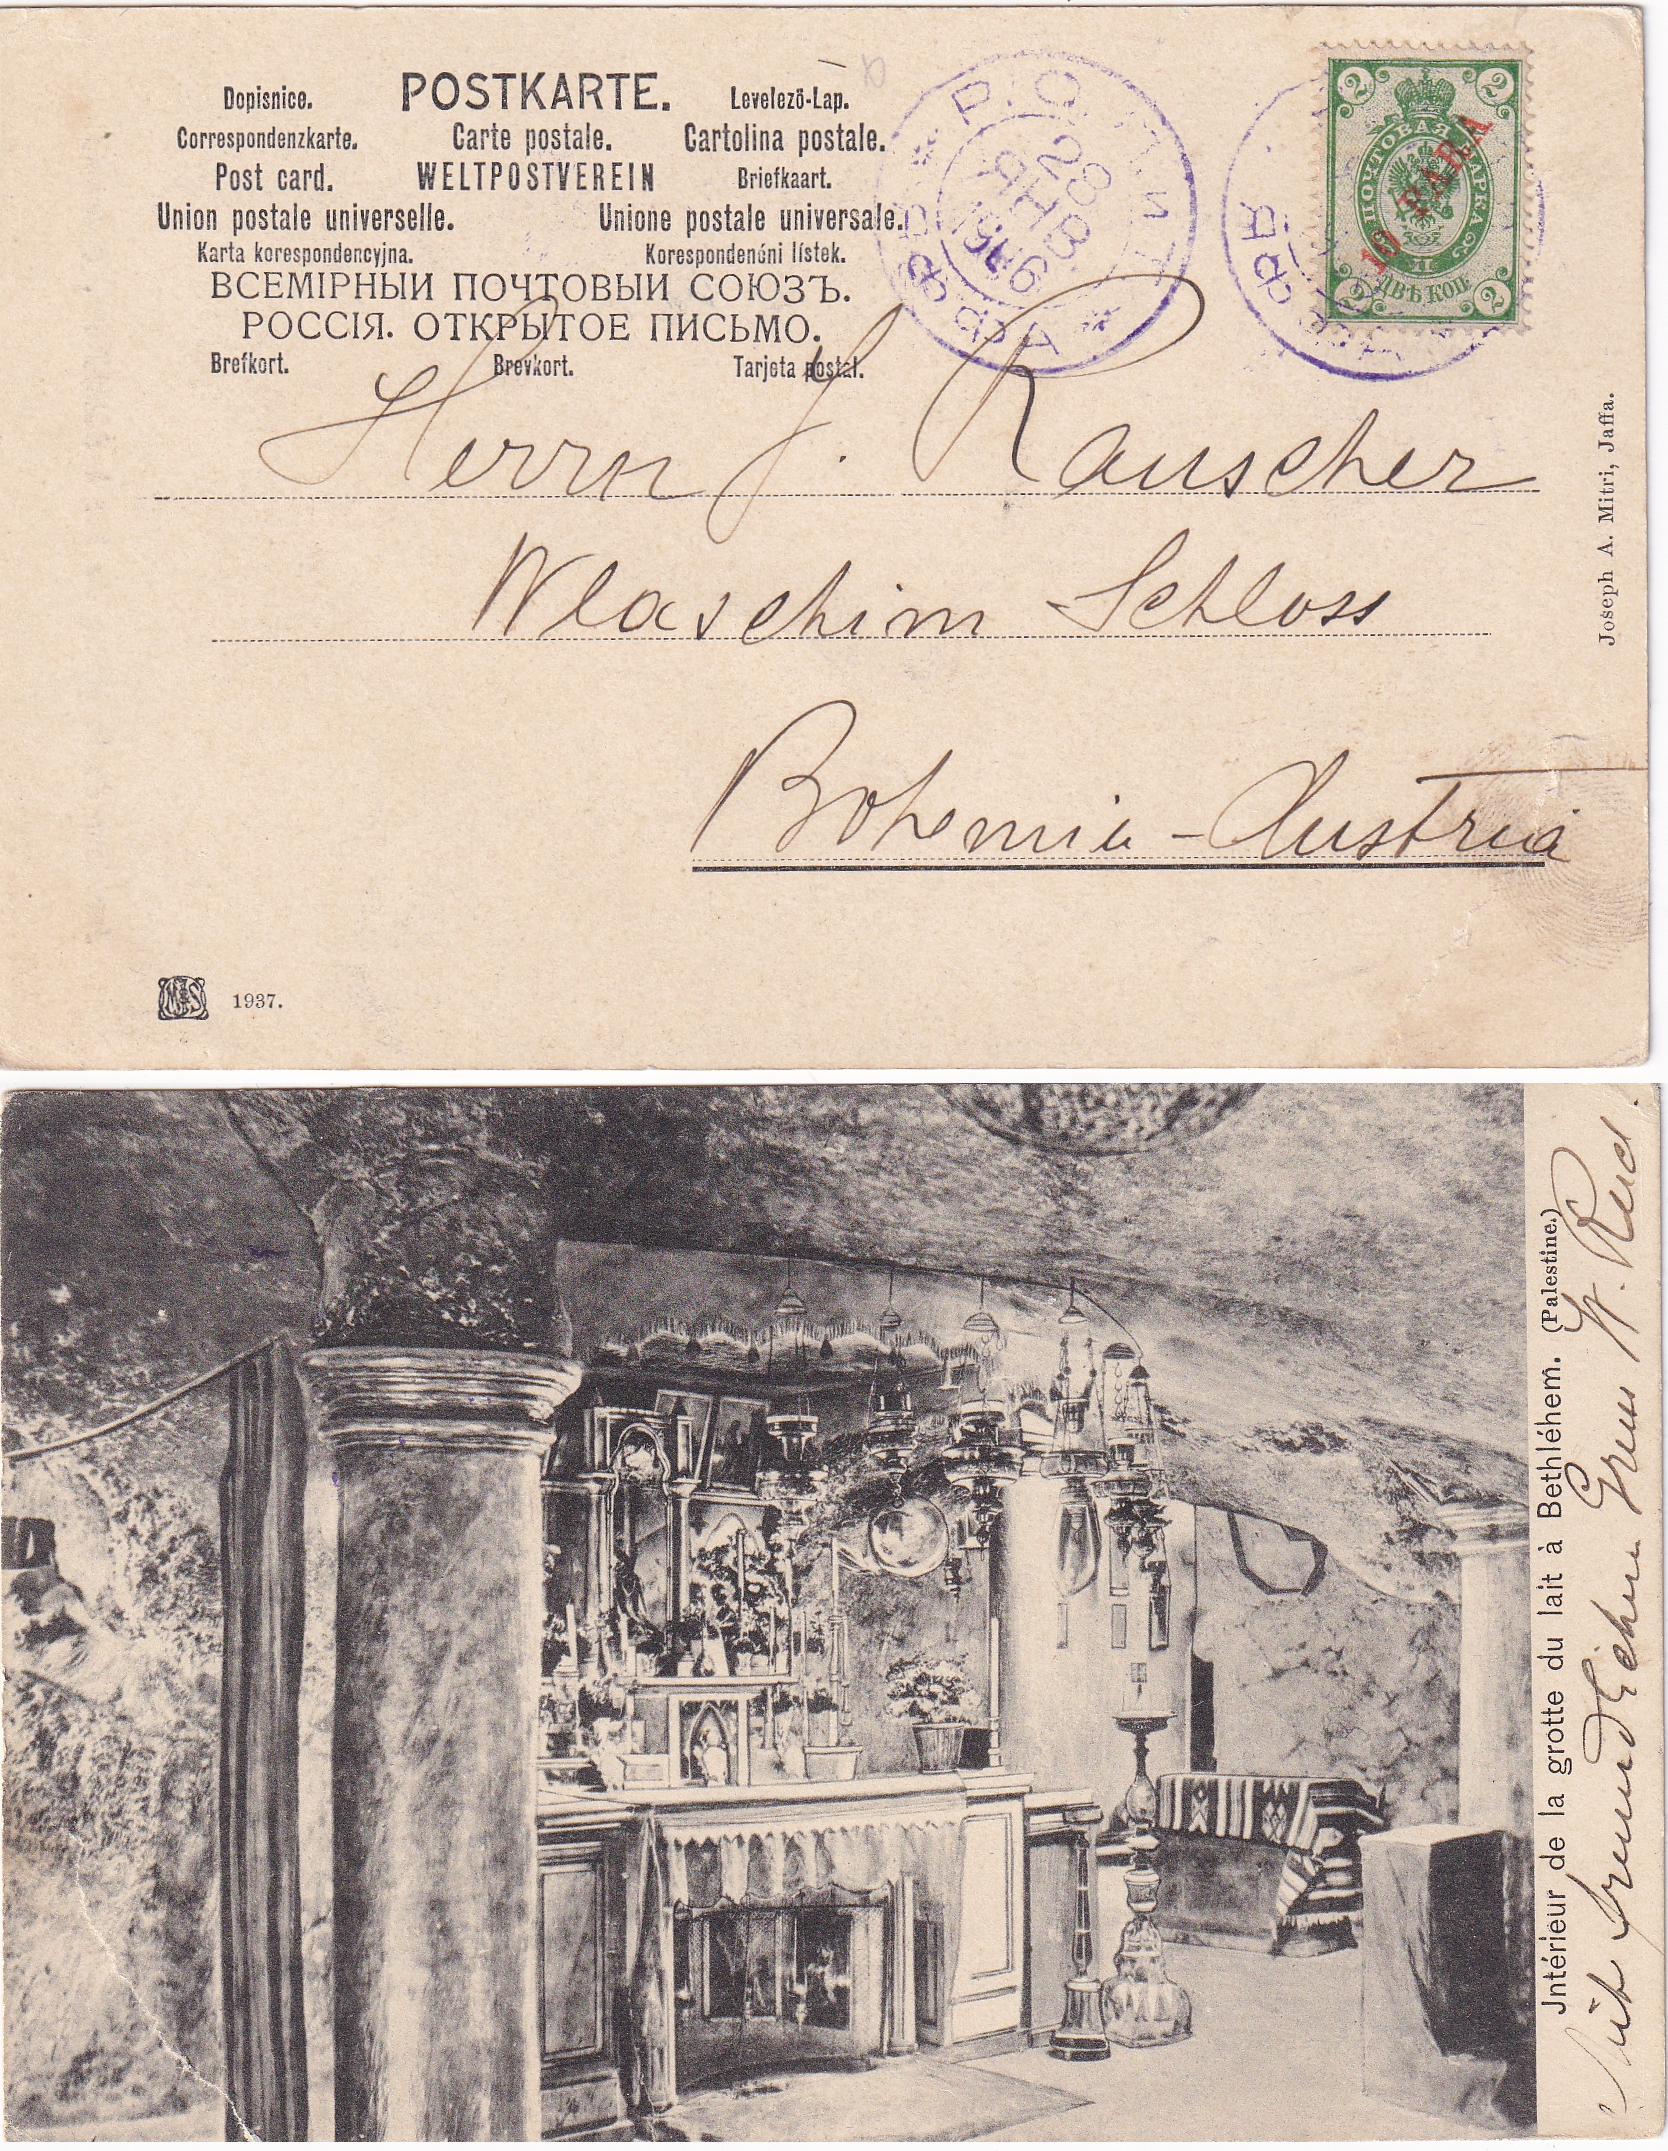 Dopisnice. POSTKARTE. Levelező-Lap.
Correspondenzkarte. Carte postale. Cartolina postale.
Post card. WELTPOSTVEREIN Briefkaart.
Union postale universelle. Unione postale universale.
Karta korespondencyjna. Korespondenóni lístek.
ВСЕМІРНЫИ ПОЧТОВЫИ СОЮЗЪ.
РОССІЯ. ОТКРЫТОЕ ПИСЬМО.
Brefkort. Brevkort. Tarjeta postal.
Р.О.П.и Т.
ЯФФА ЯФФА
28
ЯНВ.
1906
2 2
ПОЧТОВАЯ МАРКА
10 PARA
ДВѢ КОП.
2 2
Herrn J. Rauscher
Wlaschim Schloss
Bohemia - Austria
Joseph A. Mitri, Jaffa.
1937.
Jntérieur de la grotte du lait à Bethléhem. (Palestine.)
Mit freundlichem Gruss